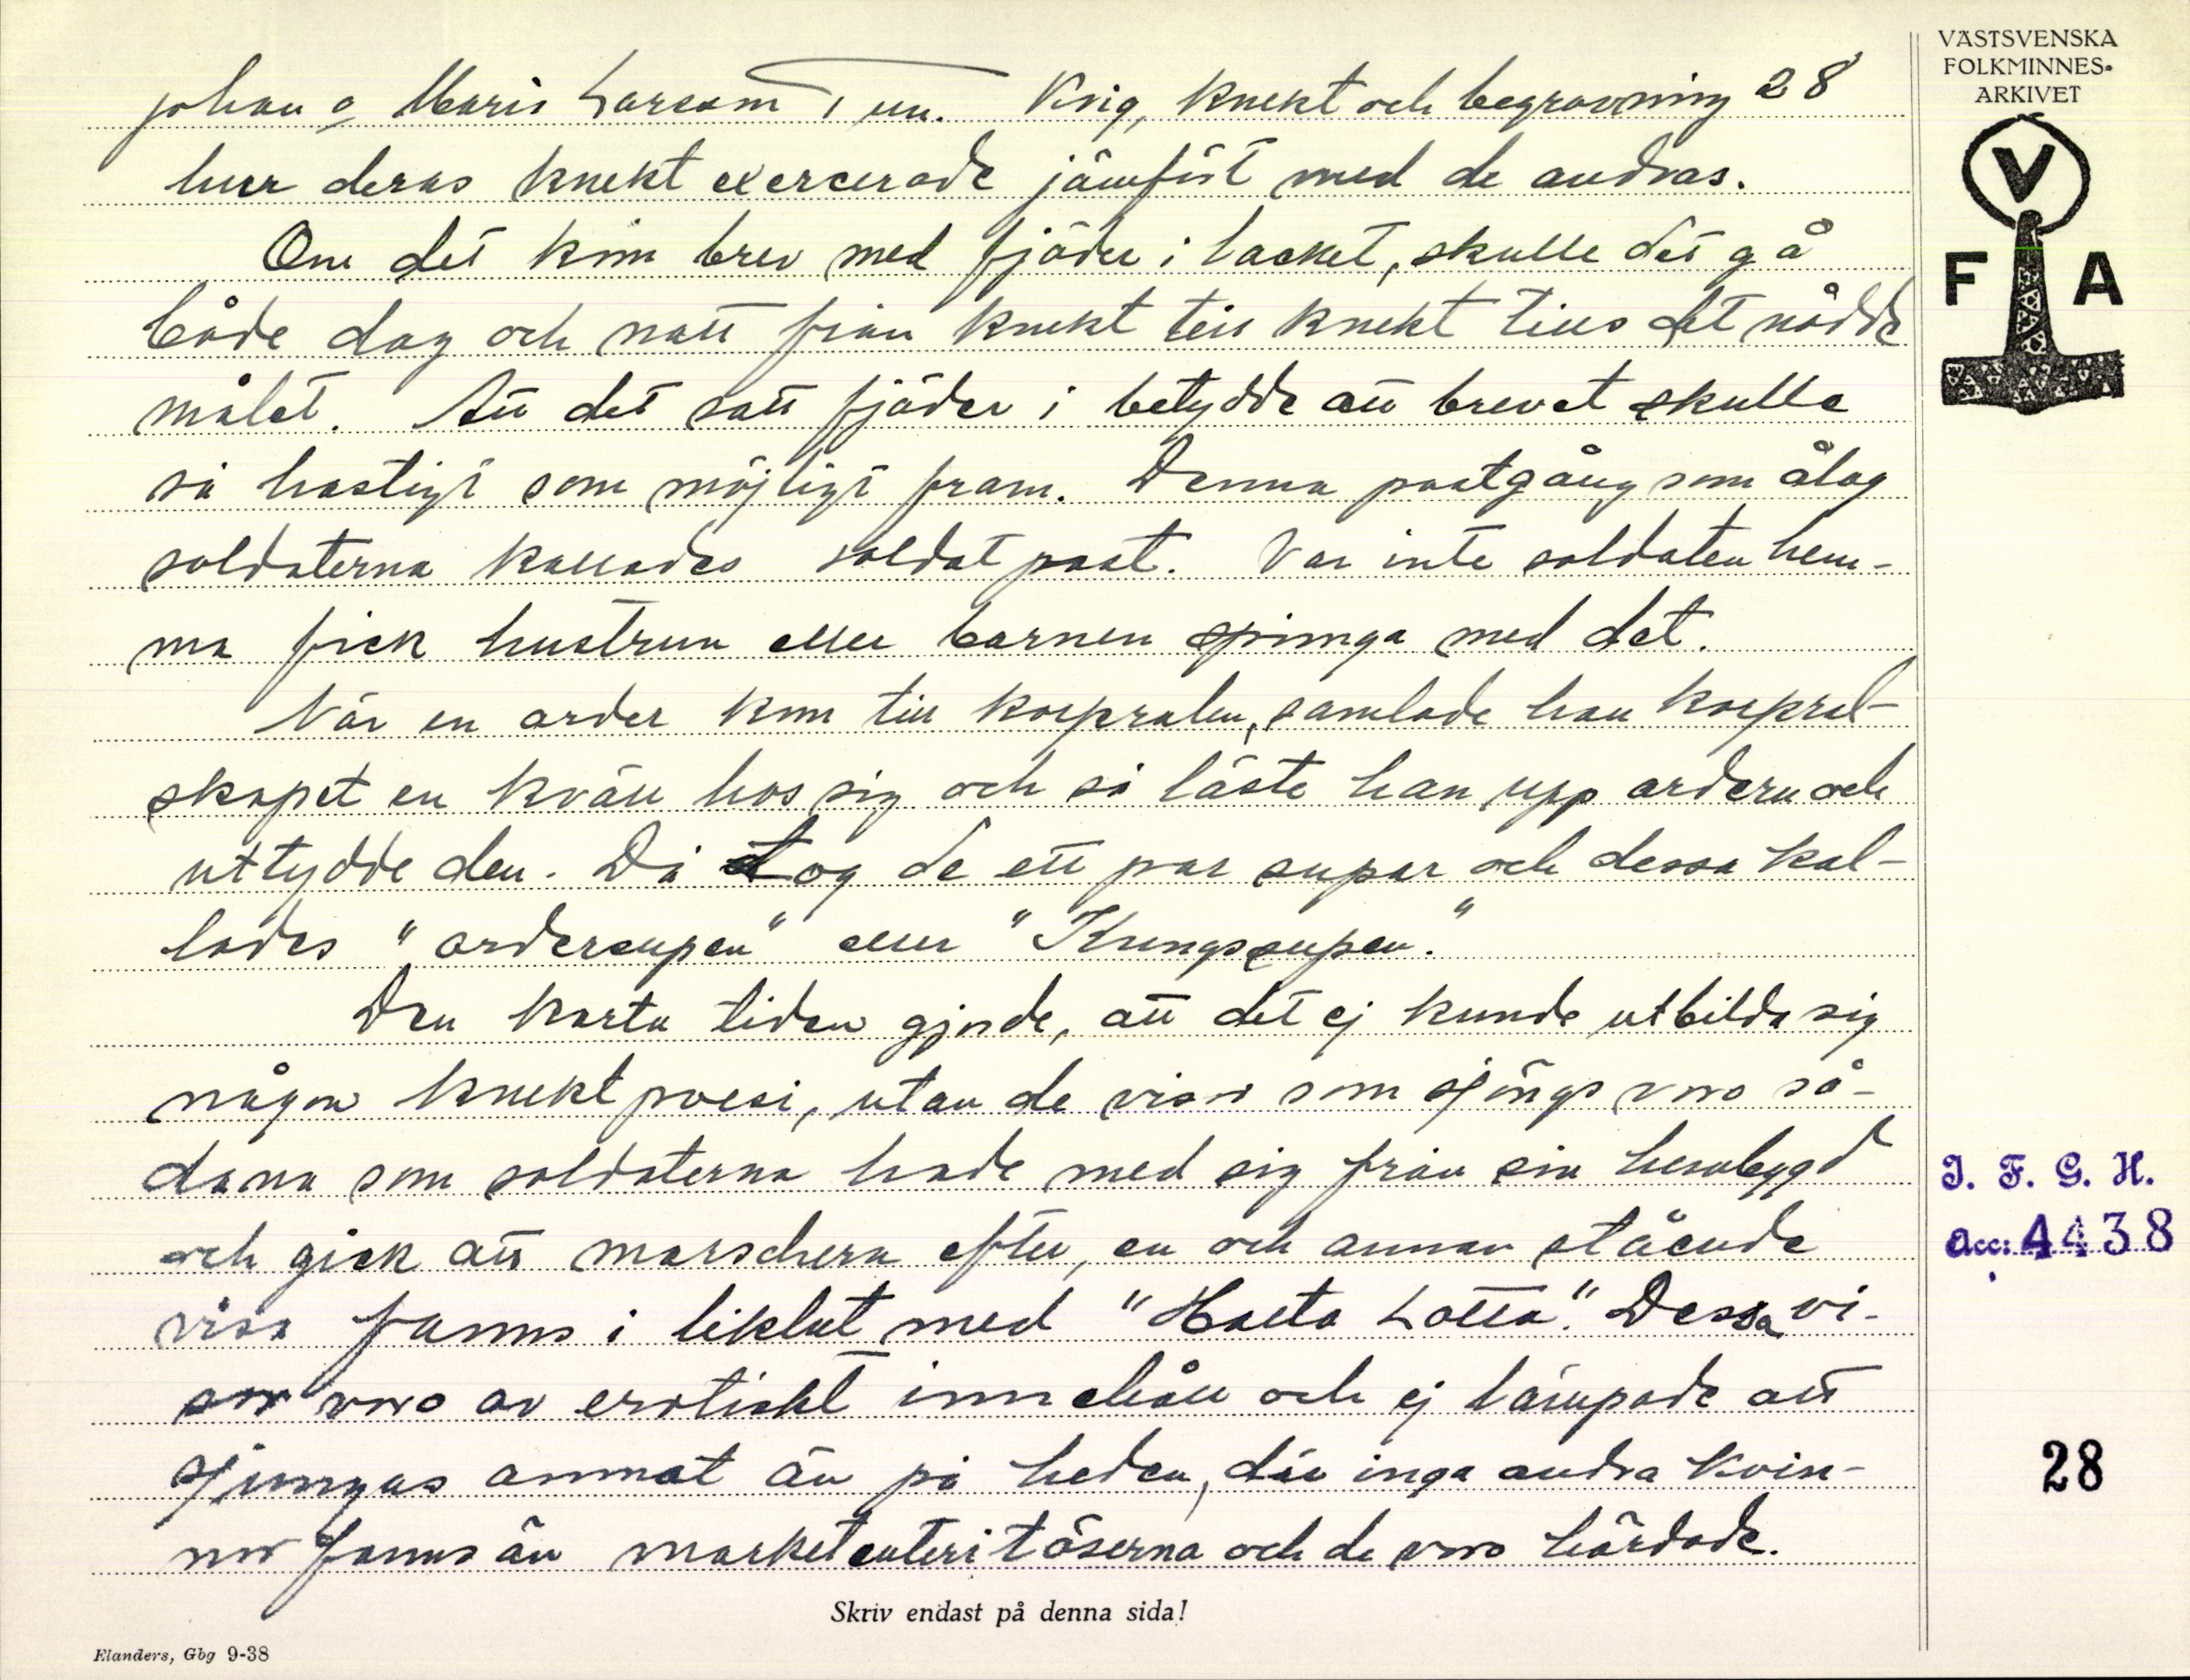 Johan o Maris Larssons Krig, knekt och begravning 28
hur deras knekt exercerade jämfört med de andras.
Om det kom brev med fjäder i lacket, skulle det gå
både dag och natt från knekt till knekt tills det nådde
målet. Att det satt fjäder i betydde att brevet skulle
så hastigt som möjligt fram. Denna postgång som ålåg
soldaterna kallades soldatpost. Var inte soldaten hem-
ma fick hustrun eller barnen springa med det.
När en order kom till korpralen, samlade han korpral-
skapet en kväll hos sig och så läste han upp ordern och
uttydde den. Då tog de ett par supar och dessa kal-
lades "ordersupen" eller "Kungssupen."
Den korta tiden gjorde, att det ej kunde utbilda sig
någon knektpoesi, utan de visor som sjöngs voro så-
dana som soldaterna hade med sig från sin hembygd
och gick att marschera efter, en och annan stående
visa fanns i likhet med "Halta Lotta". Dessa vi-
sor voro av erotiskt innehåll och ej lämpade att
sjungas annat än på heden, där inga andra kvin-
nor fanns än marketenteritöserna och de voro härdade.
Skriv endast på denna sida!
Elanders, Gbg 9-38
VÄSTSVENSKA
FOLKMINNES-
ARKIVET
V
F A
I. F. G. H.
Acc: 4438
28